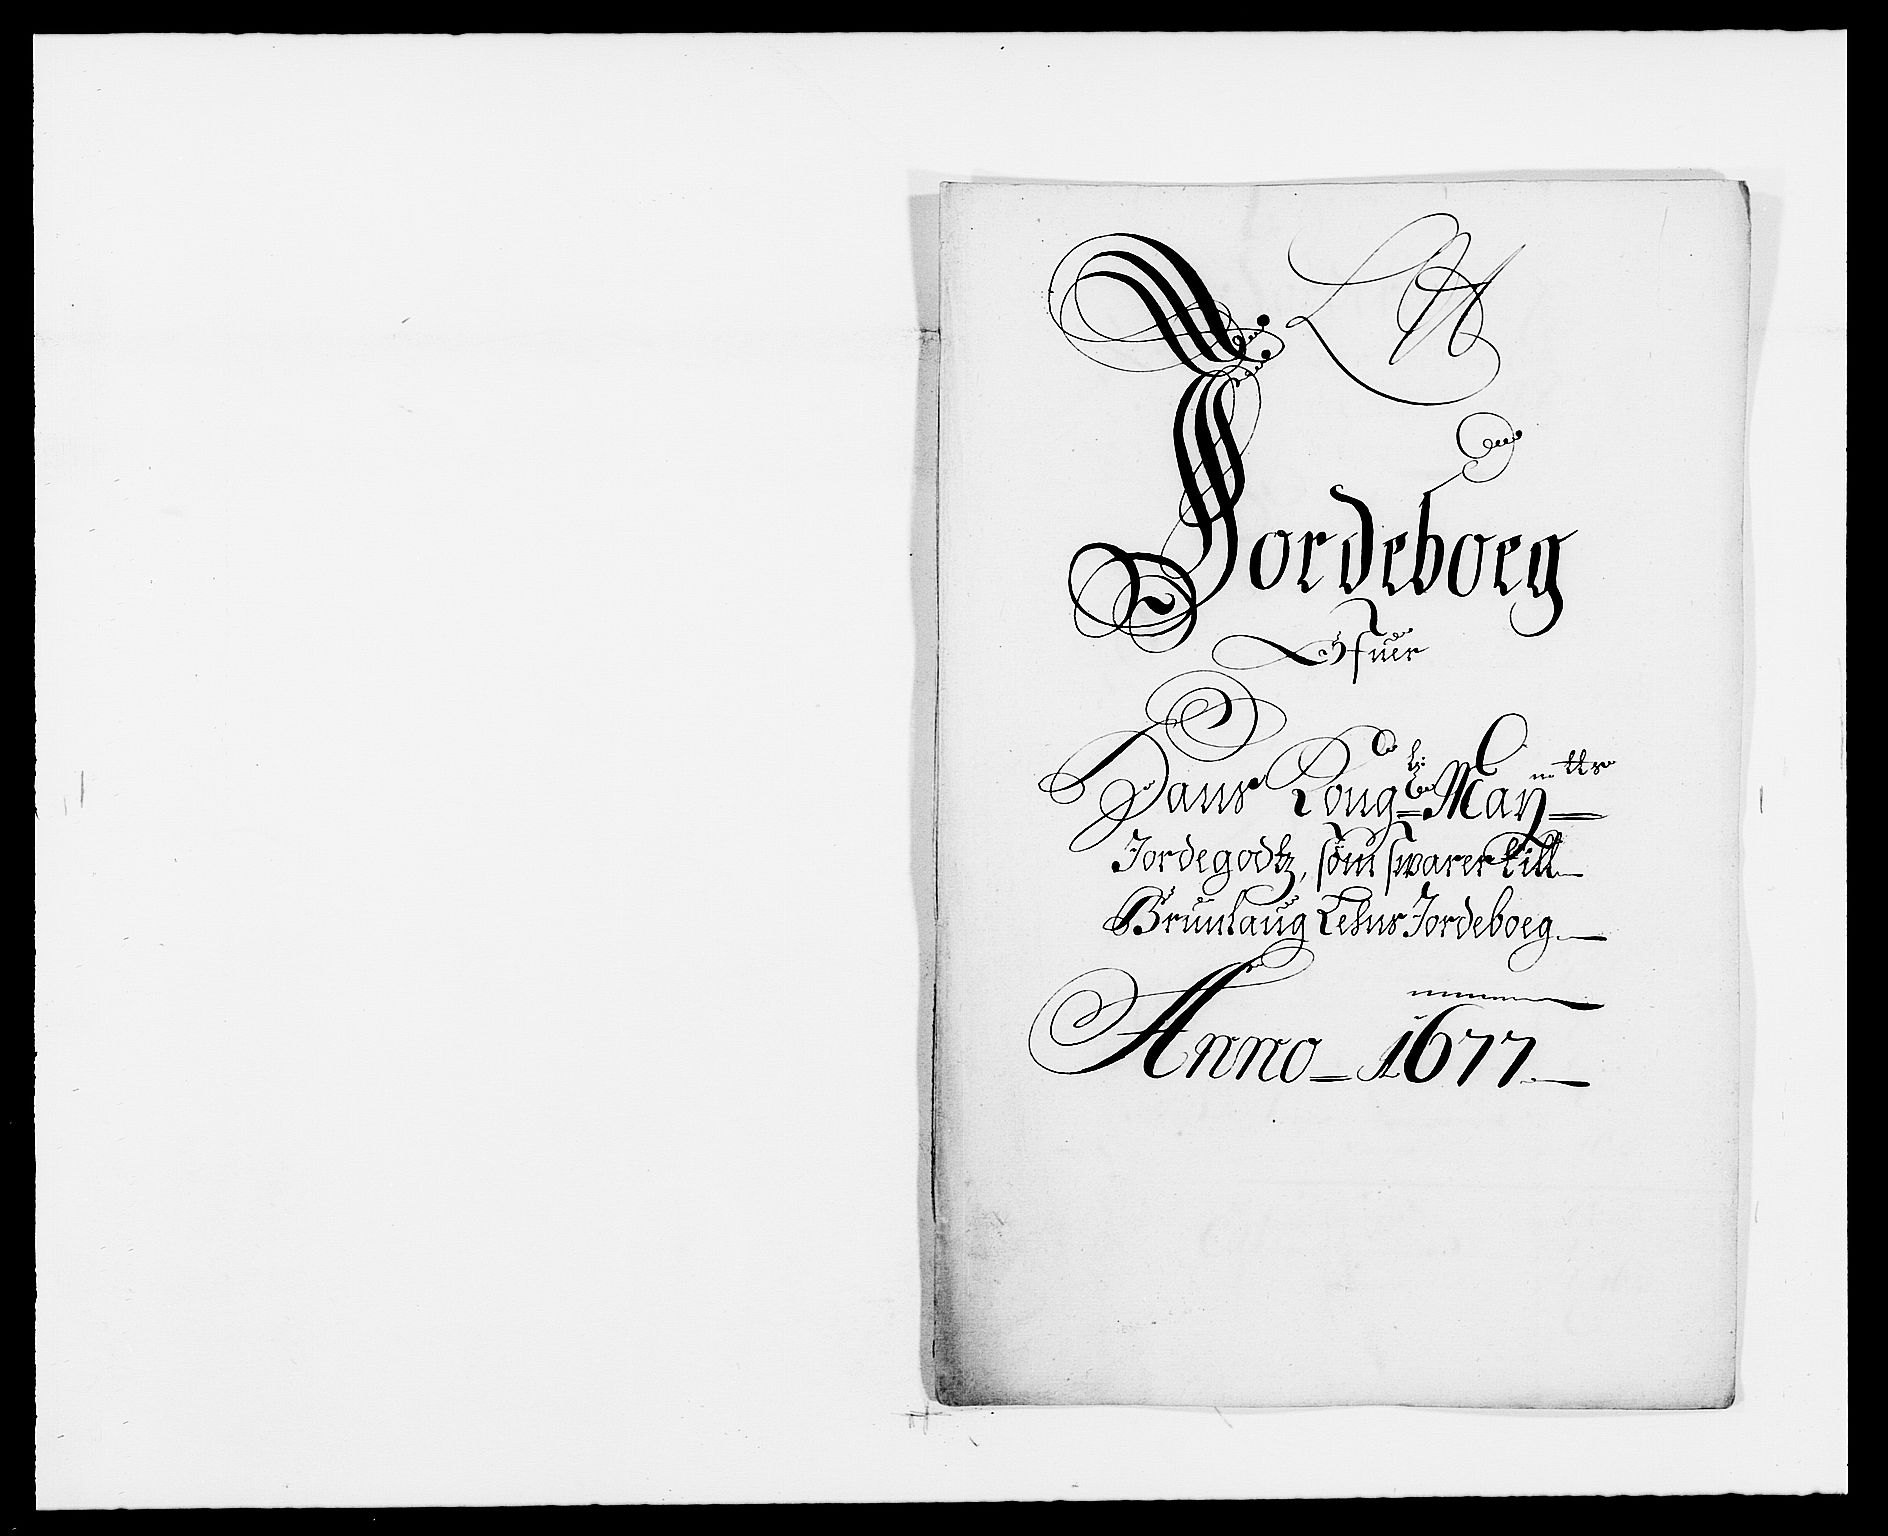 Jordeboeg
Ofuer
Hans Kong: Maytts
Jordegodtz, som swarer till
Brunlaug Lehns Jordeboeg
Anno 1677